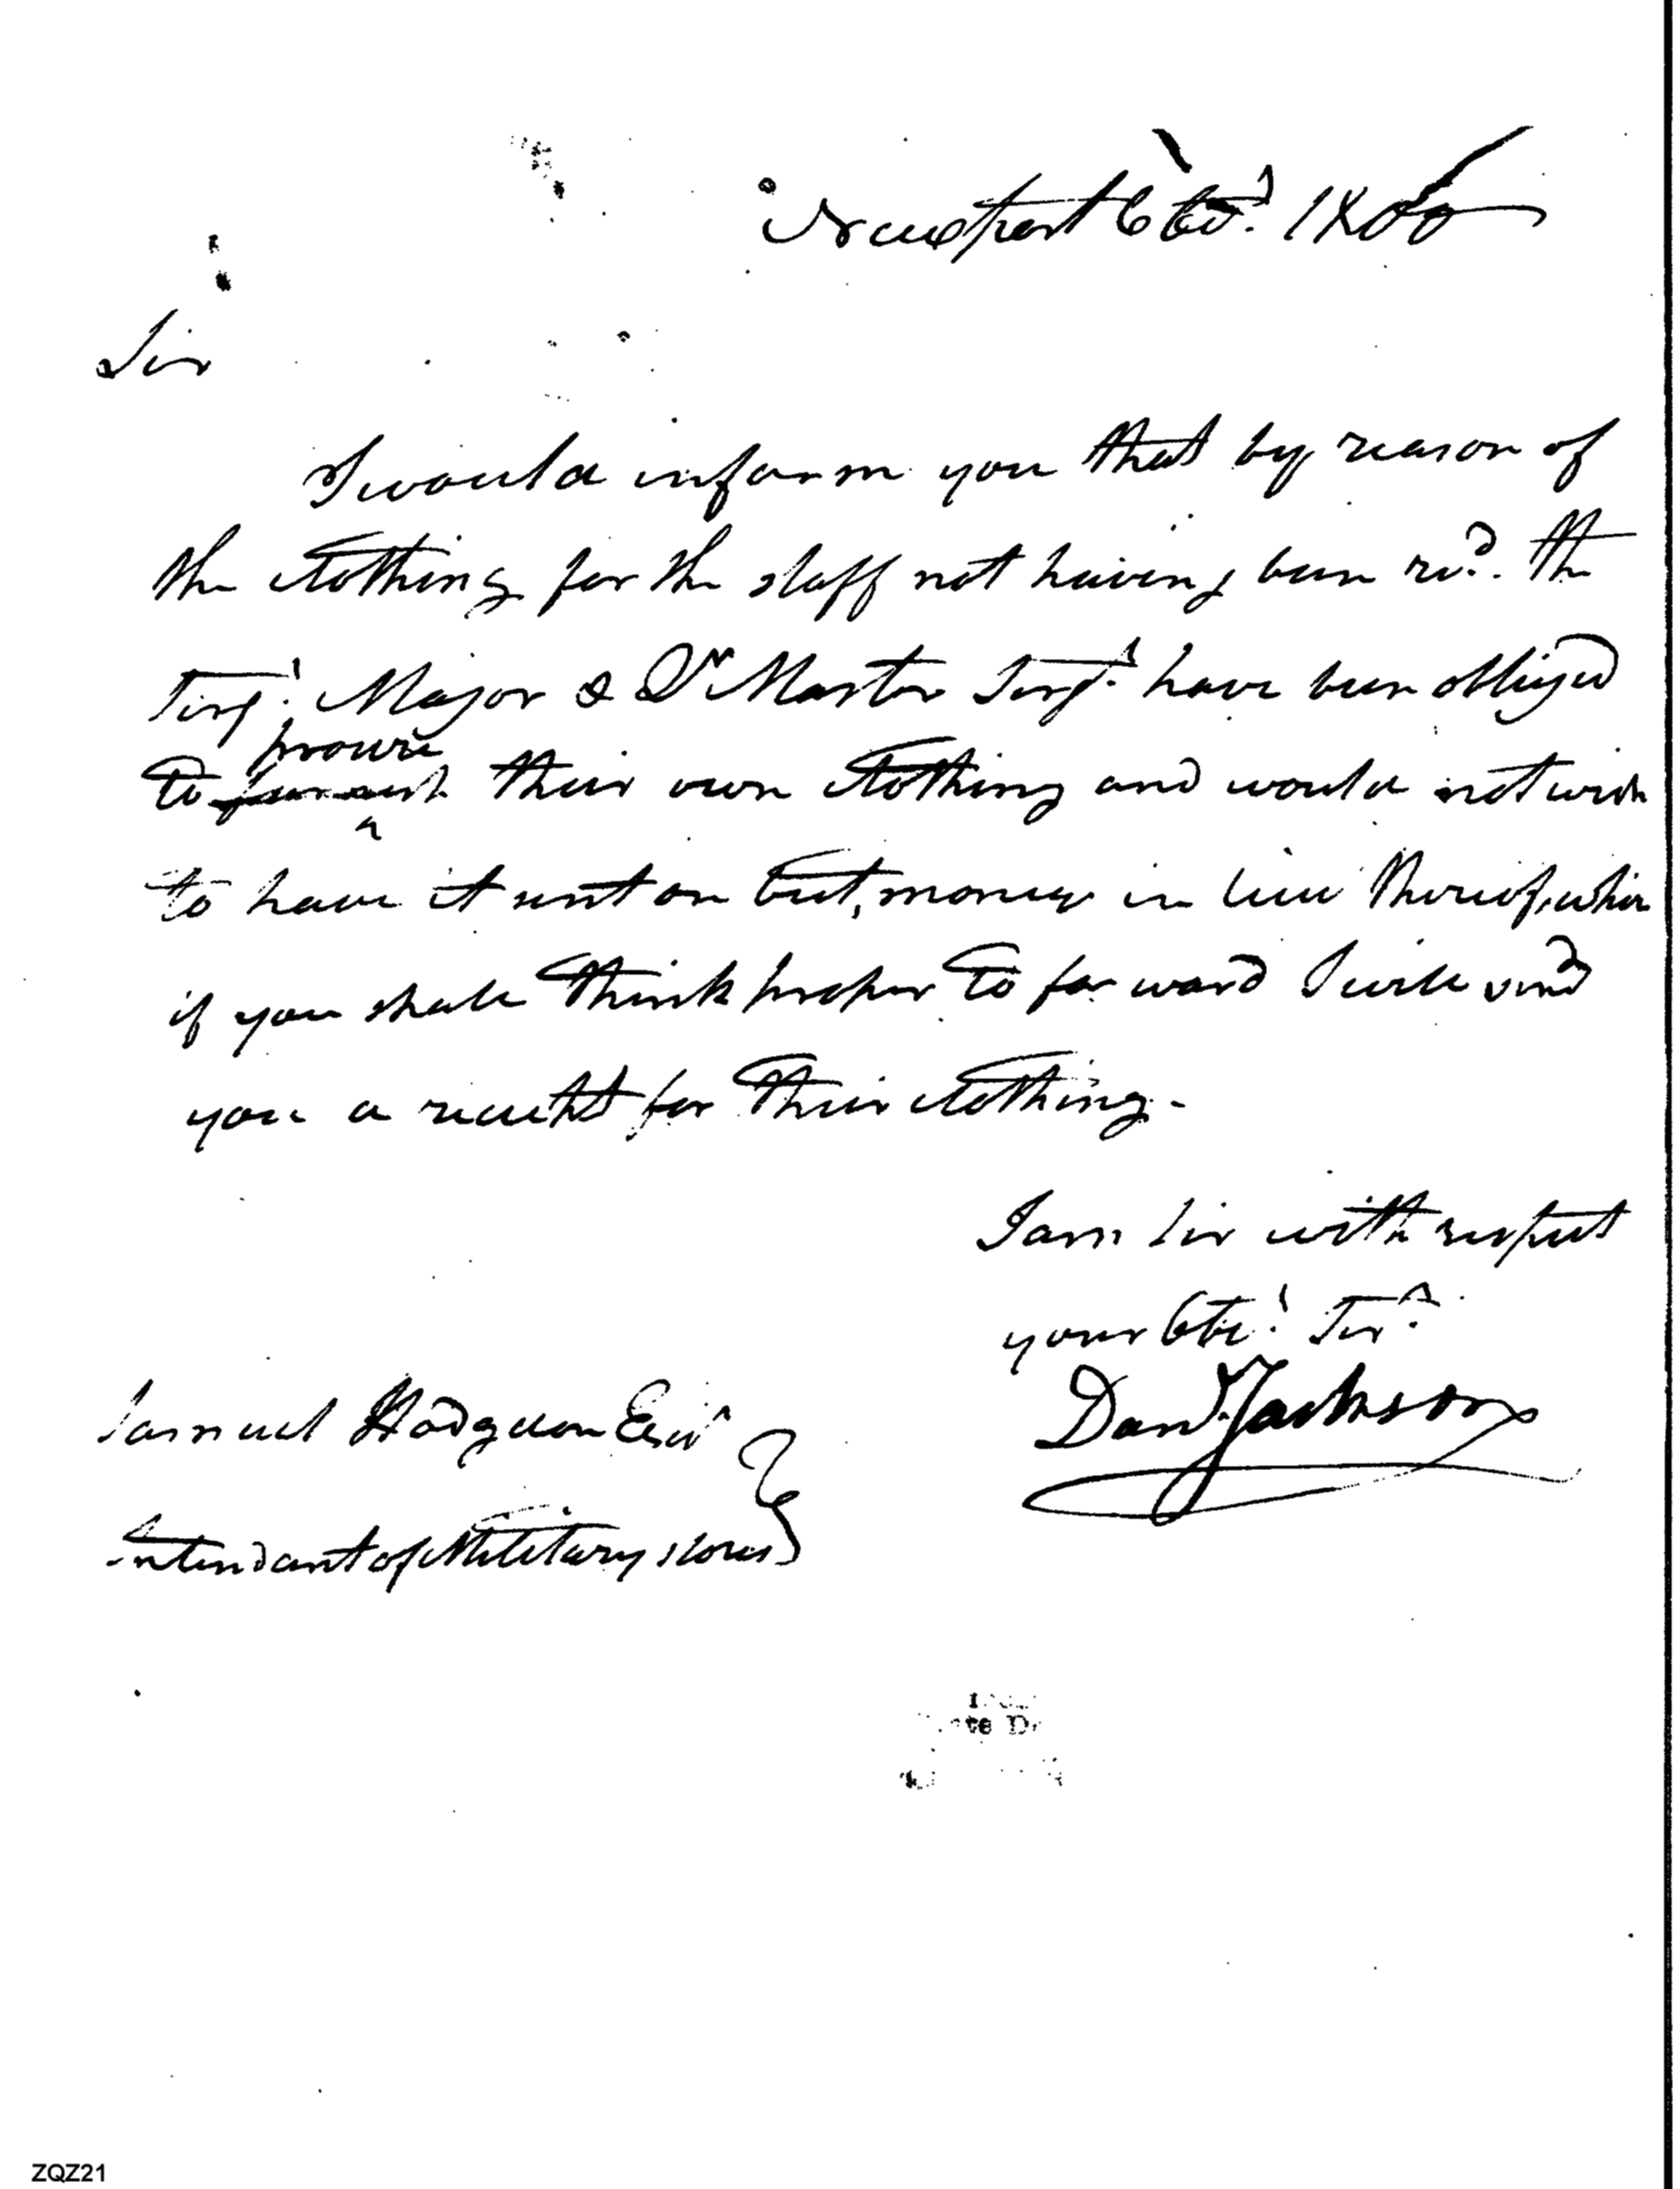 Newport 6 Octr. 1800
Sir
I would inform you that by reason of
the clothing for the staff not having been recd. the
Sergt. Major & Qr Master Sergt. have been obliged
procure
to furnish their own clothing and would not wish
to have it sent on but, money in lieu thereof, which
if you shall think proper to forward I will send
you a receipt for their clothing.
I am Sir with respect
your Obt. Sert.
Danl. Jackson
Samuel Hodgdon Esqr
Intendant of Military stores
ZQZ21